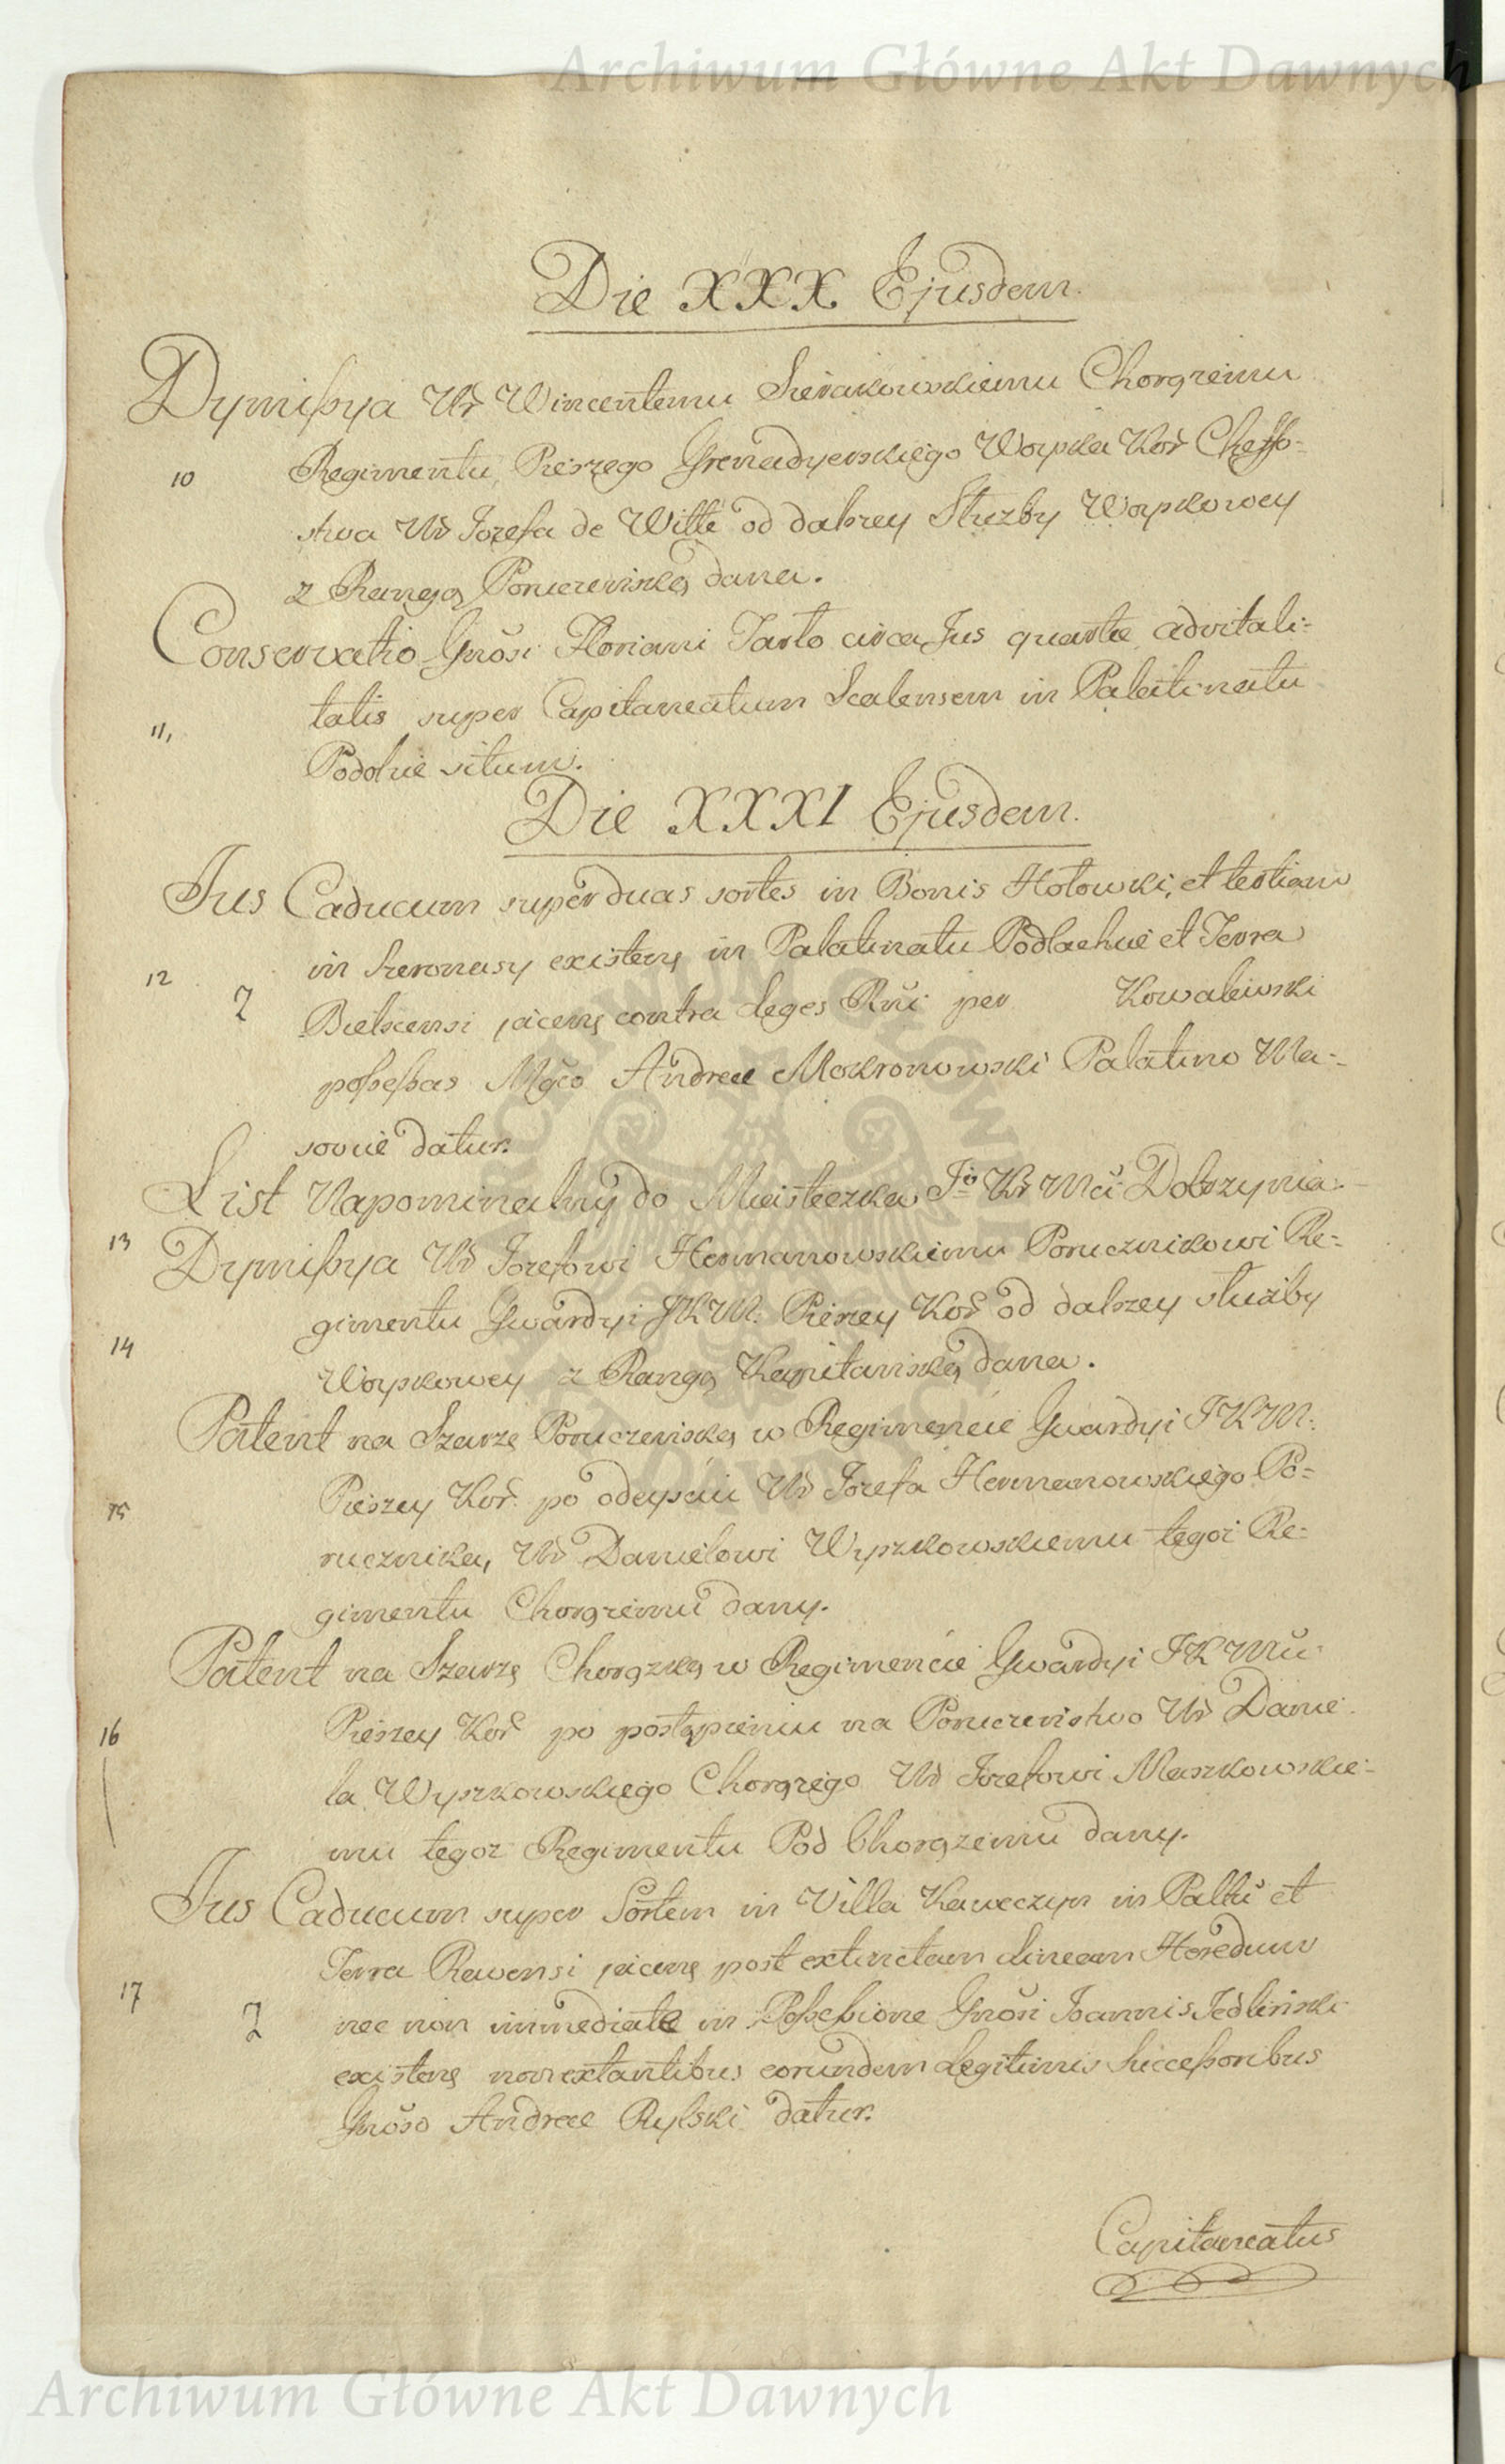 Archiwum Główne Akt Dawnych
Die XXX Ejusdem.
Dymissya Ur Wincentemu Sierakowskiemu Chorążemu
10 Regimentu Pieszego Grenadyerskiego Woyska Kor Cheffo-
stwa Ur Jozefa de Witte od dalszey Służby Woyskowey
z Rangą Poruczniską dana.
Conservatio Gnosi Floriani Tarło circa Jus quartae advitali-
11, tatis super Capitaneatum Scalensem in Palatinatu
Podoliae situm.
Die XXXI Ejusdem.
Jus Caducum super duas sortes in Bonis Hołowki, et tertiam
12 in Szeronasy existen in Palatinatu Podlachiae et Terra
Bielscensi jacen contra Leges Rni per Kowalewski
possessas Mgco Andreae Mokronowski Palatino Ma-
soviae datur.
13 List Napominalny do Miasteczka Jo Kr Mci Dobrzynia.
Dymissya Ur Jozefowi Hermanowskiemu Porucznikowi Re-
14 gimentu Gwardyi JKM. Pieszey Kor od dalszey służby
Woyskowey z Rangą Kapitańską dana.
Patent na Szarżę Poruczeńiską w Regimencie Gwardyi JKM.
15 Pieszey Kor. po odeyściu Ur Jozefa Hermanowskiego Po-
rucznika, Ur Danielowi Wyszkowskiemu tegoż Re-
gimentu Chorążemu dany.
Patent na Szarżę Chorąską w Regimencie Gwardyi JKMci
16 Pieszey Kor po postąpieniu na Poruczeństwo Ur Danie-
la Wyszkowskiego Chorążego Ur Jozefowi Maszkowskie-
mu tegoz Regimentu Pod Chorążemu dany.
Jus Caducum super Sortem in Villa Kawęczyn in Paltu et
17 Terra Ravensi jacen post extinctam lineam Haeredum
nec non immediate in Possessione Gnosi Joannis Jedliński
existen non extantibus eorundem Legitimis Successoribus
Gnoso Andreae Rylski datur.
Capitaneatus
Archiwum Główne Akt Dawnych